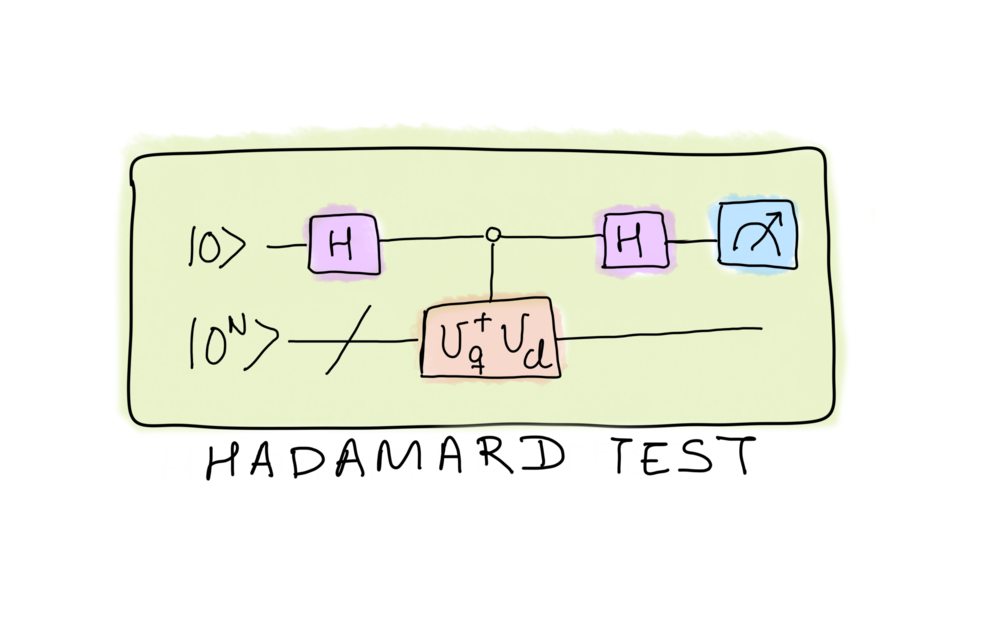 |0> H H
|0^N> U_q^† U_d
HADAMARD TEST